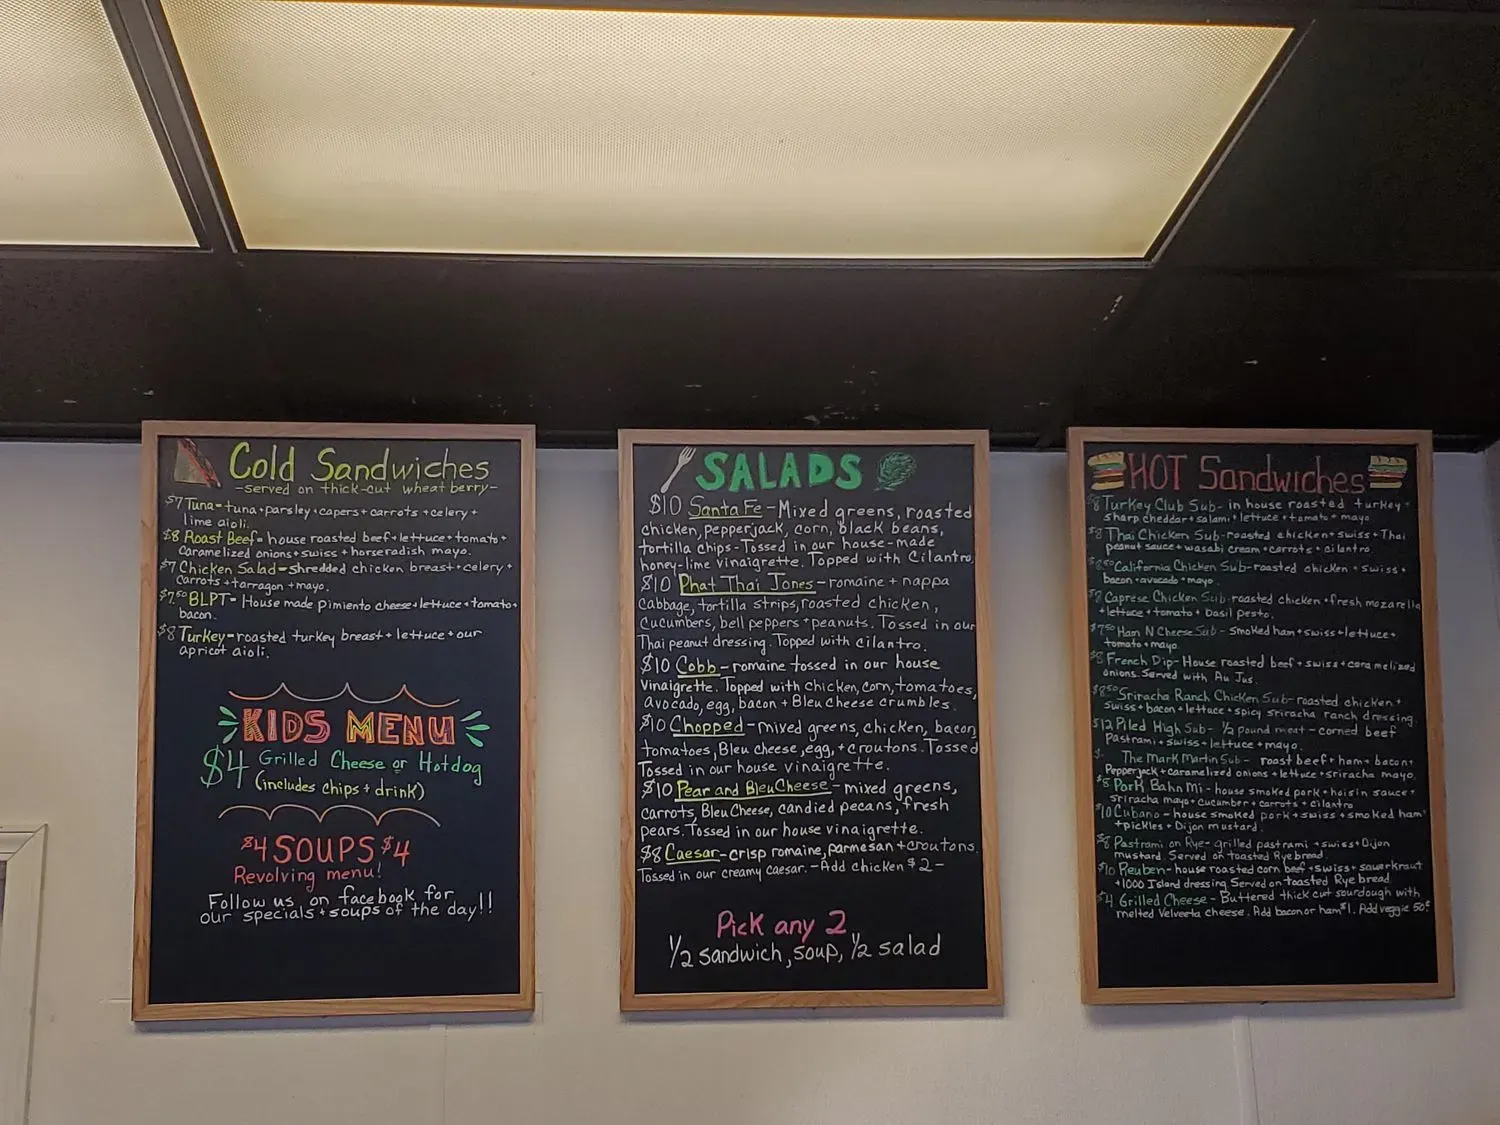 Cold Sandwiches
-served on thick-cut wheat berry-
$7 Tuna-tuna+parsley+capers+carrots+celery+
lime aioli.
$8 Roast Beef-house roasted beef+lettuce+tomato+
caramelized onions+swiss+horseradish mayo.
$7 Chicken Salad-shredded chicken breast+celery+
carrots+tarragon+mayo.
$7.50 BLPT-House made pimiento cheese+lettuce+tomato+
bacon.
$8 Turkey-roasted turkey breast+lettuce+our
apricot aioli.
KIDS MENU
$4 Grilled Cheese or Hotdog
(includes chips + drink)
$4 SOUPS $4
Revolving menu!
Follow us on facebook for
our specials + soups of the day!!
SALADS
$10 Santa Fe-Mixed greens, roasted
chicken, pepperjack, corn, black beans,
tortilla chips-Tossed in our house-made
honey-lime vinaigrette. Topped with Cilantro.
$10 Phat Thai Jones-romaine + nappa
cabbage, tortilla strips, roasted chicken,
cucumbers, bell peppers + peanuts. Tossed in our
Thai peanut dressing. Topped with cilantro.
$10 Cobb-romaine tossed in our house
vinaigrette. Topped with chicken, corn, tomatoes,
avocado, egg, bacon + Bleu cheese crumbles.
$10 Chopped-mixed greens, chicken, bacon,
tomatoes, Bleu cheese, egg, + croutons. Tossed
Tossed in our house vinaigrette.
$10 Pear and Bleu Cheese-mixed greens,
carrots, Bleu Cheese, candied pecans, fresh
pears. Tossed in our house vinaigrette.
$8 Caesar-crisp romaine, parmesan+croutons.
Tossed in our creamy caesar. -Add chicken $2-
Pick any 2
1/2 sandwich, soup, 1/2 salad
HOT Sandwiches
$8 Turkey Club Sub-in house roasted turkey+
sharp cheddar+salami+lettuce+tomato+mayo
$8 Thai Chicken Sub-roasted chicken+swiss+Thai
peanut sauce+wasabi cream+carrots+cilantro
$8.50 California Chicken Sub-roasted chicken+swiss+
bacon+avocado+mayo.
$8 Caprese Chicken Sub-roasted chicken+fresh mozarella
+lettuce+tomato+basil pesto.
$7.50 Ham N Cheese Sub-smoked ham+swiss+lettuce+
tomato+mayo.
$8 French Dip-House roasted beef+swiss+caramelized
onions. Served with Au Jus.
$8.50 Sriracha Ranch Chicken Sub-roasted chicken+
swiss+bacon+lettuce+spicy sriracha ranch dressing.
$12 Piled High Sub-1/2 pound meat-corned beef
Pastrami+swiss+lettuce+mayo.
The Mark Martin Sub-roast beef+ham+bacon+
Pepperjack+caramelized onions+lettuce+sriracha mayo.
$8 Pork Bahn Mi-house smoked pork+hoisin sauce+
sriracha mayo+cucumber+carrots+cilantro
$10 Cubano-house smoked pork+swiss+smoked ham
+pickles+Dijon mustard.
$8 Pastrami on Rye-grilled pastrami+swiss+Dijon
mustard. Served on toasted Rye bread.
$10 Reuben-house roasted corn beef+swiss+sauerkraut
+1000 Island dressing Served on toasted Rye bread
$4 Grilled Cheese-Buttered thick cut sourdough with
melted Velveeta cheese. Add bacon or ham $1. Add veggie 50¢